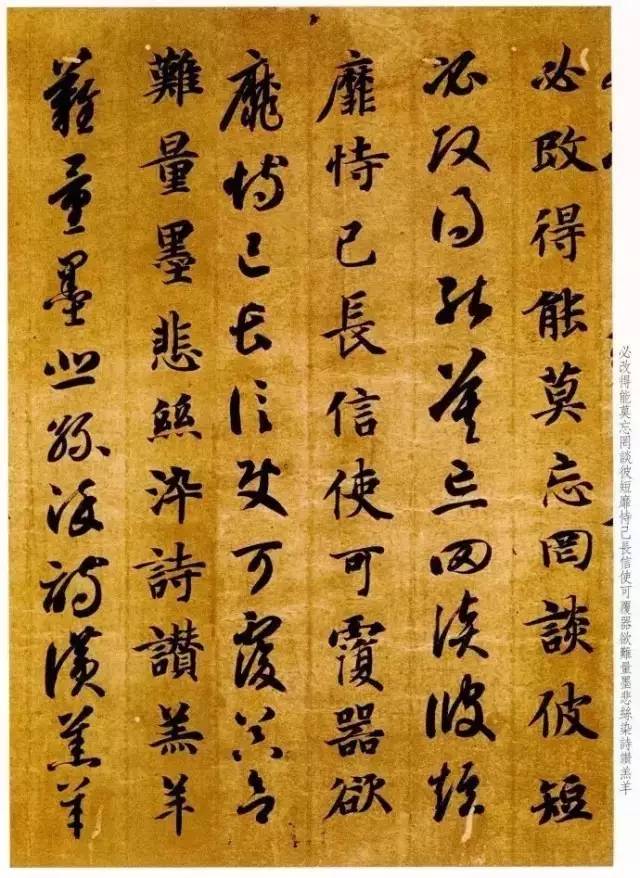 必改得能莫忘罔談彼短
必改得能莫忘罔談彼短
靡恃己長信使可覆器欲
靡恃己長信使可覆器欲
難量墨悲絲染詩讃羔羊
難量墨悲絲染詩讃羔羊
必改得能莫忘罔談彼短靡恃己長信使可覆器欲難量墨悲絲染詩讃羔羊